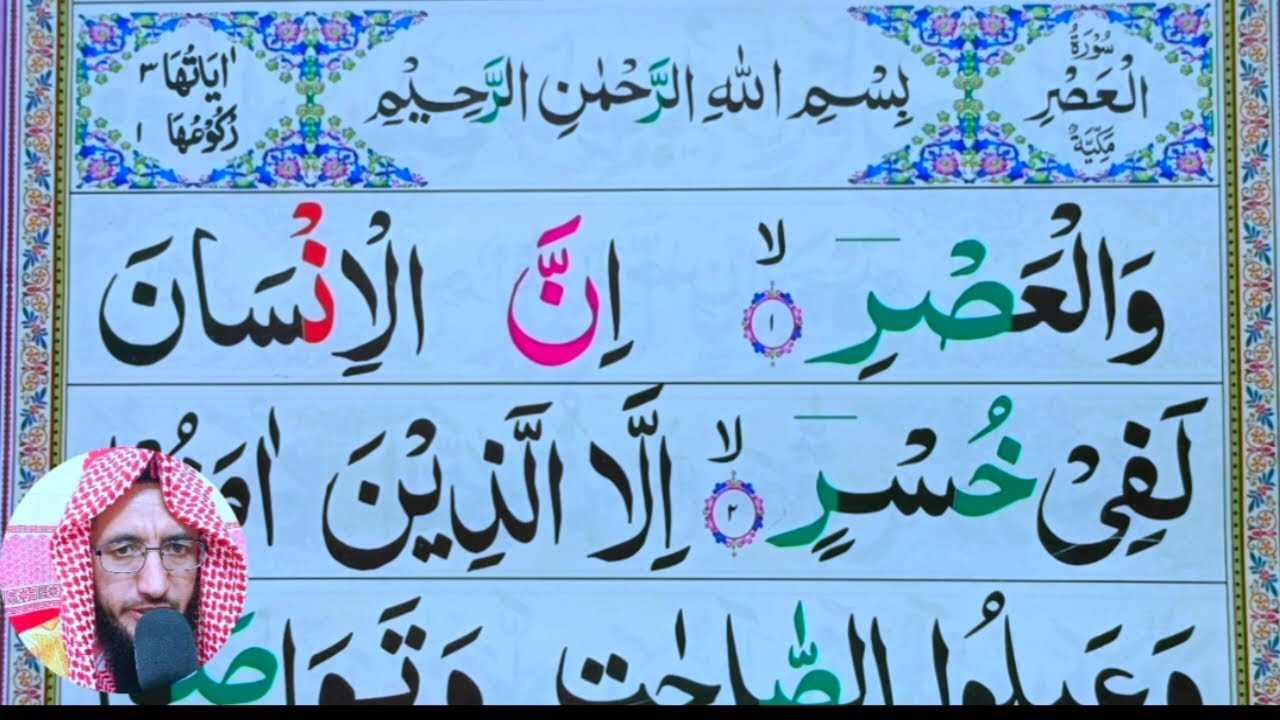 سُوۡرَةُ
الۡعَصۡرِ
مَكِّيَّةٌ
بِسۡمِ اللّٰهِ الرَّحۡمٰنِ الرَّحِيۡمِ
اٰيَاتُهَا ٣
رُكُوۡعُهَا ١
وَالۡعَصۡرِ ۙ ١ اِنَّ الۡاِنۡسَانَ
لَفِىۡ خُسۡرٍ ۙ ٢ اِلَّا الَّذِيۡنَ
وَعَمِلُوا الصّٰلِحٰتِ